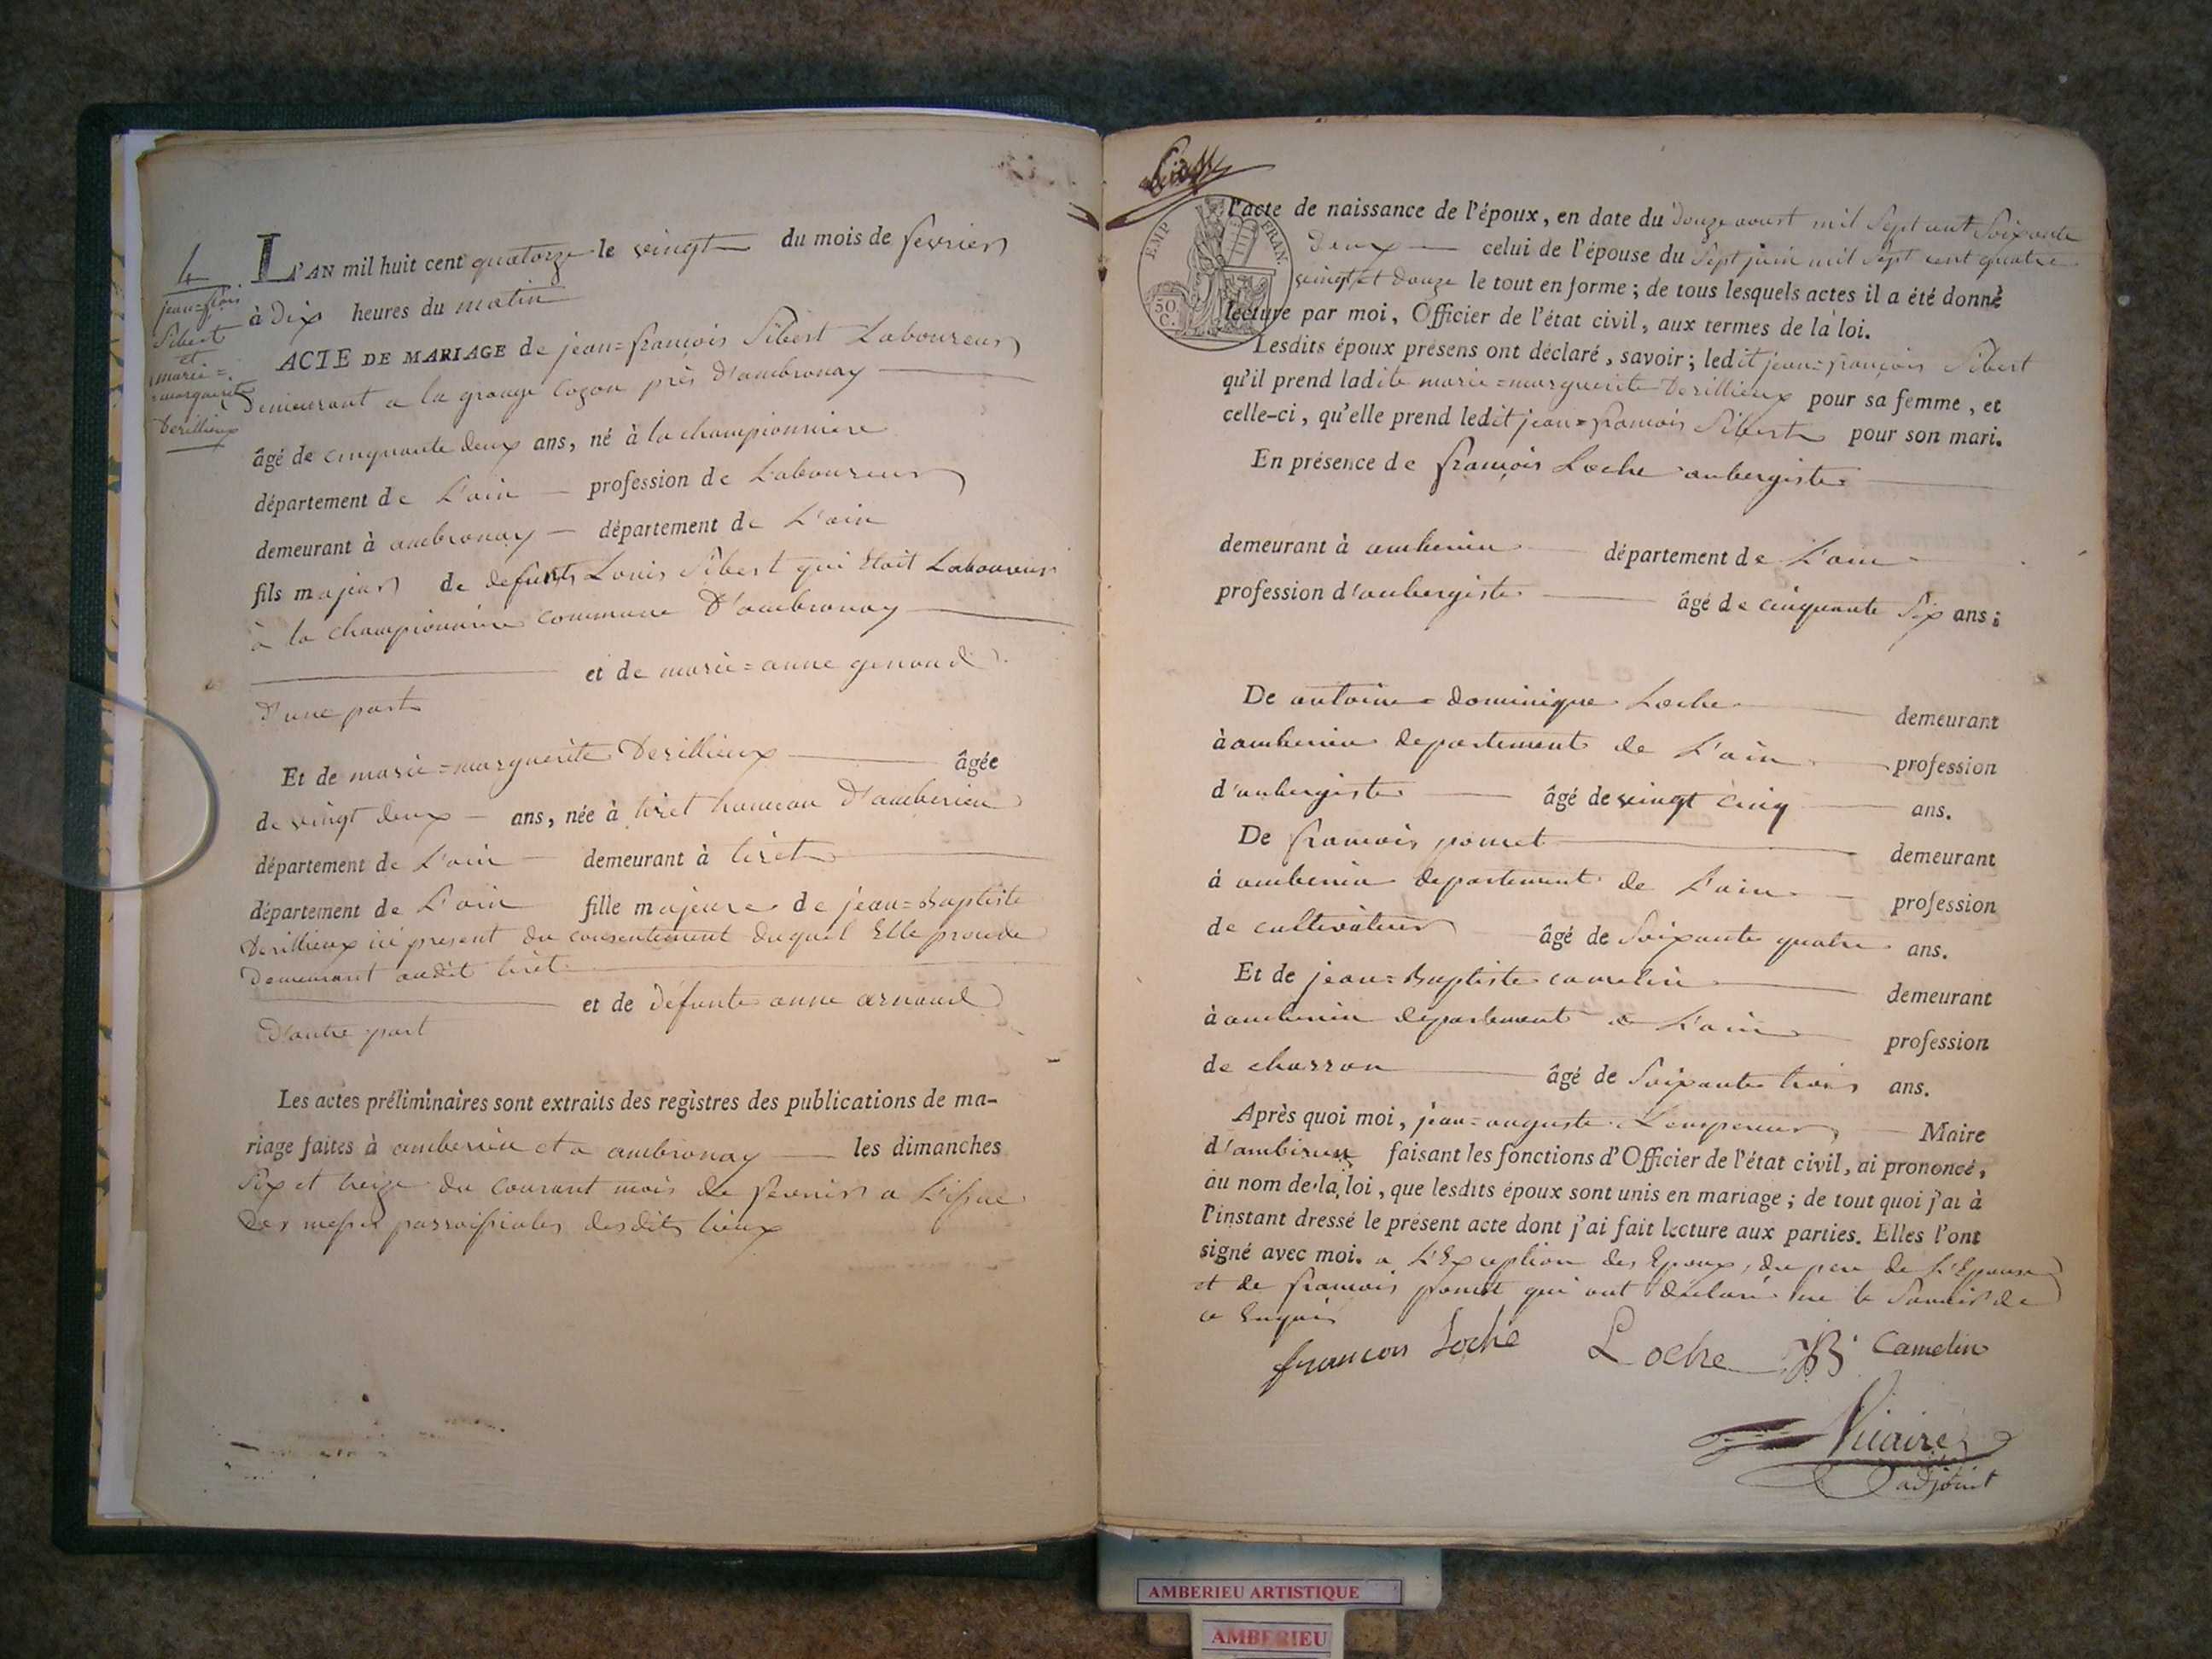 4
jean=frois
Sibert
et
marie=
marguerite
Derillieux
L'AN mil huit cent quatorze le vingt du mois de fevrier
à Dix heures du matin
ACTE DE MARIAGE de jean=françois Sibert Laboureur
Demeurant a la grange cozon près d'ambronay
âgé de cinquante deux ans, né à la championniere
département de L'ain profession de Laboureur
demeurant à ambronay département de L'ain
fils majeur de defunts Louis Sibert qui Etoit Laboureur
à la championniere commune D'ambronay
et de marie=anne genoud
D'une part
Et de marie=marguerite Derillieux âgée
de vingt deux ans, née à tiret hameau D'amberieu
département de L'ain demeurant à tiret
département de L'ain fille majeure de jean=Baptiste
Derillieux ici present du consentement duquel Elle procede
Demeurant audit tiret
et de défunte anne arnaud
D'autre part
Les actes préliminaires sont extraits des registres des publications de ma-
riage faites à amberieu et a ambronay les dimanches
Six et treize du courant mois de fevrier a L'issue
Des messes parroissiales desdits lieux
EMP FRAN.
50 C.
l'acte de naissance de l'époux, en date du Douze aoust mil Sept cent Soixante
Deux celui de l'épouse du Sept juin mil Sept cent quatre
vingt et douze le tout en forme ; de tous lesquels actes il a été donné
lecture par moi, Officier de l'état civil, aux termes de la loi.
Lesdits époux présens ont déclaré, savoir ; ledit jean=françois Sibert
qu'il prend ladite marie=marguerite Derillieux pour sa femme, et
celle-ci, qu'elle prend ledit jean=françois Sibert pour son mari.
En présence de françois Loche aubergiste
demeurant à amberieu département de L'ain
profession d'aubergiste âgé de cinquante Six ans ;
De antoine=dominique Loche demeurant
à amberieu departement de L'ain profession
d'aubergiste âgé de vingt cinq ans.
De françois poncet demeurant
à amberieu departement de L'ain profession
de cultivateur âgé de Soixante quatre ans.
Et de jean=Baptiste camelin demeurant
à amberieu departement de L'ain profession
de charron âgé de Soixante trois ans.
Après quoi moi, jean=auguste Lempereur Maire
d'amberieu faisant les fonctions d'Officier de l'état civil, ai prononcé,
au nom de la loi, que lesdits époux sont unis en mariage ; de tout quoi j'ai à
l'instant dressé le présent acte dont j'ai fait lecture aux parties. Elles l'ont
signé avec moi. a L'Exception des Epoux, du pere de L'Epouse
et de françois poncet qui ont déclaré ne le Savoir de
ce Enquis
francois Loche Loche JB Camelin
adjoint
AMBERIEU ARTISTIQUE
AMBERIEU